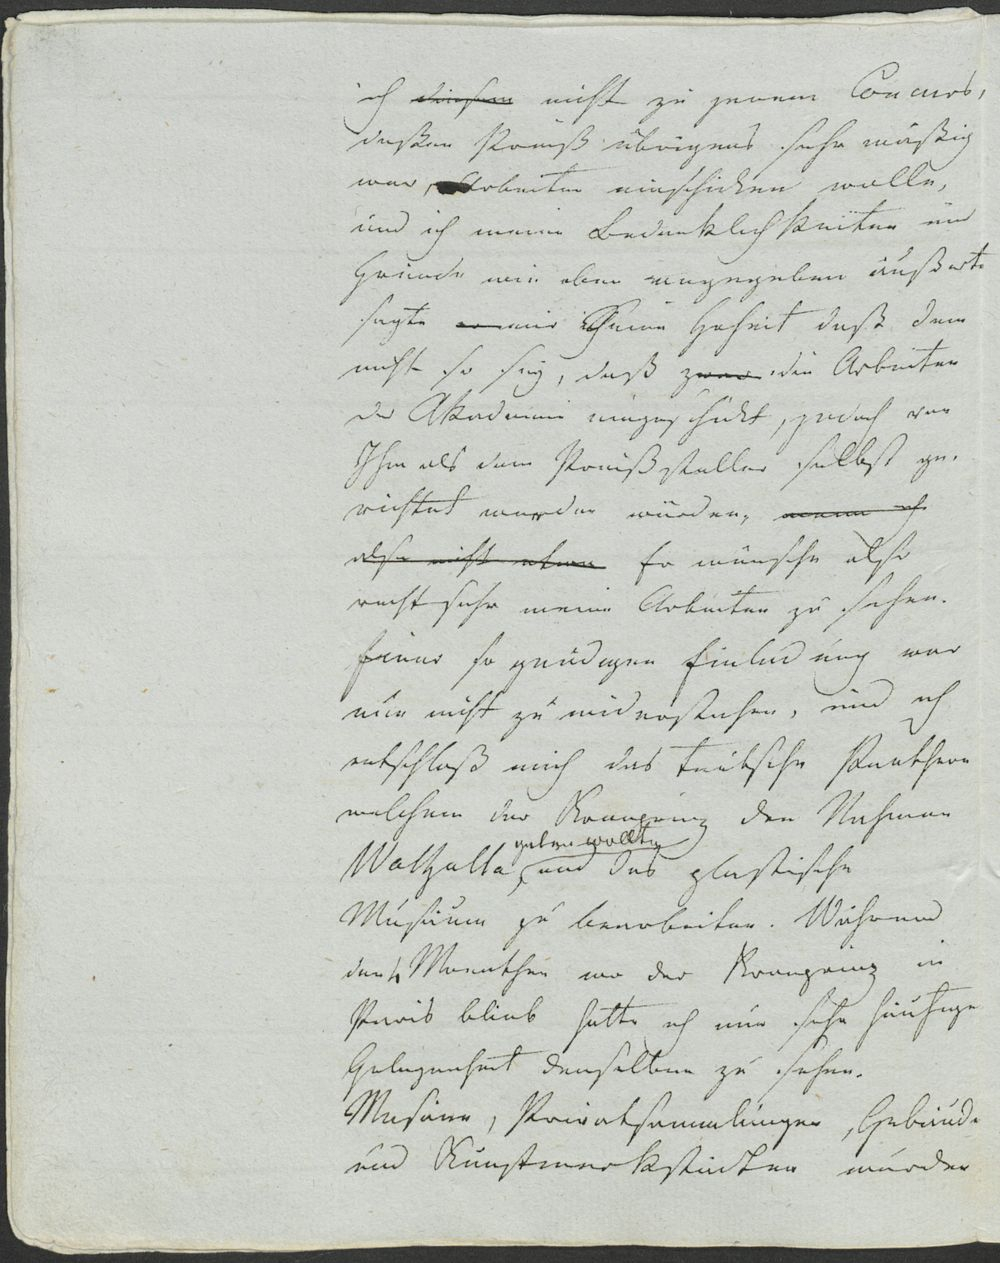 ich diesem nicht zu jenem Concurs,
dessen Preiß übrigens sehr mäßig
war, Arbeiten einschicken wolle,
und ich meine Bedenklichkeiten und
Gründe wie oben angegeben äußerte
sagte er mir Seine Hoheit daß dem
nicht so sey, daß zwar die Arbeiten
der Akademie eingeschickt, jedoch von
Ihm als dem Preißsteller selbst ge-
richtet werden würden, wenn ich
also nicht etwa Er wünsche also
recht sehr meine Arbeiten zu sehen.
Einer so gnädigen Einladung war
nun nicht zu widerstehen, und ich
entschloß mich das teutsche Pantheon
welchem der Kronprinz den Nahmen
geben wollte
Walhalla, und das plastische
Museum zu bearbeiten. Während
den 4 Monathen wo der Kronprinz in
Paris blieb hatte ich nun sehr häufige
Gelegenheit denselben zu sehen.
Museen, Privatsammlungen, Gebäude
und Kunstwerkstädten wurden